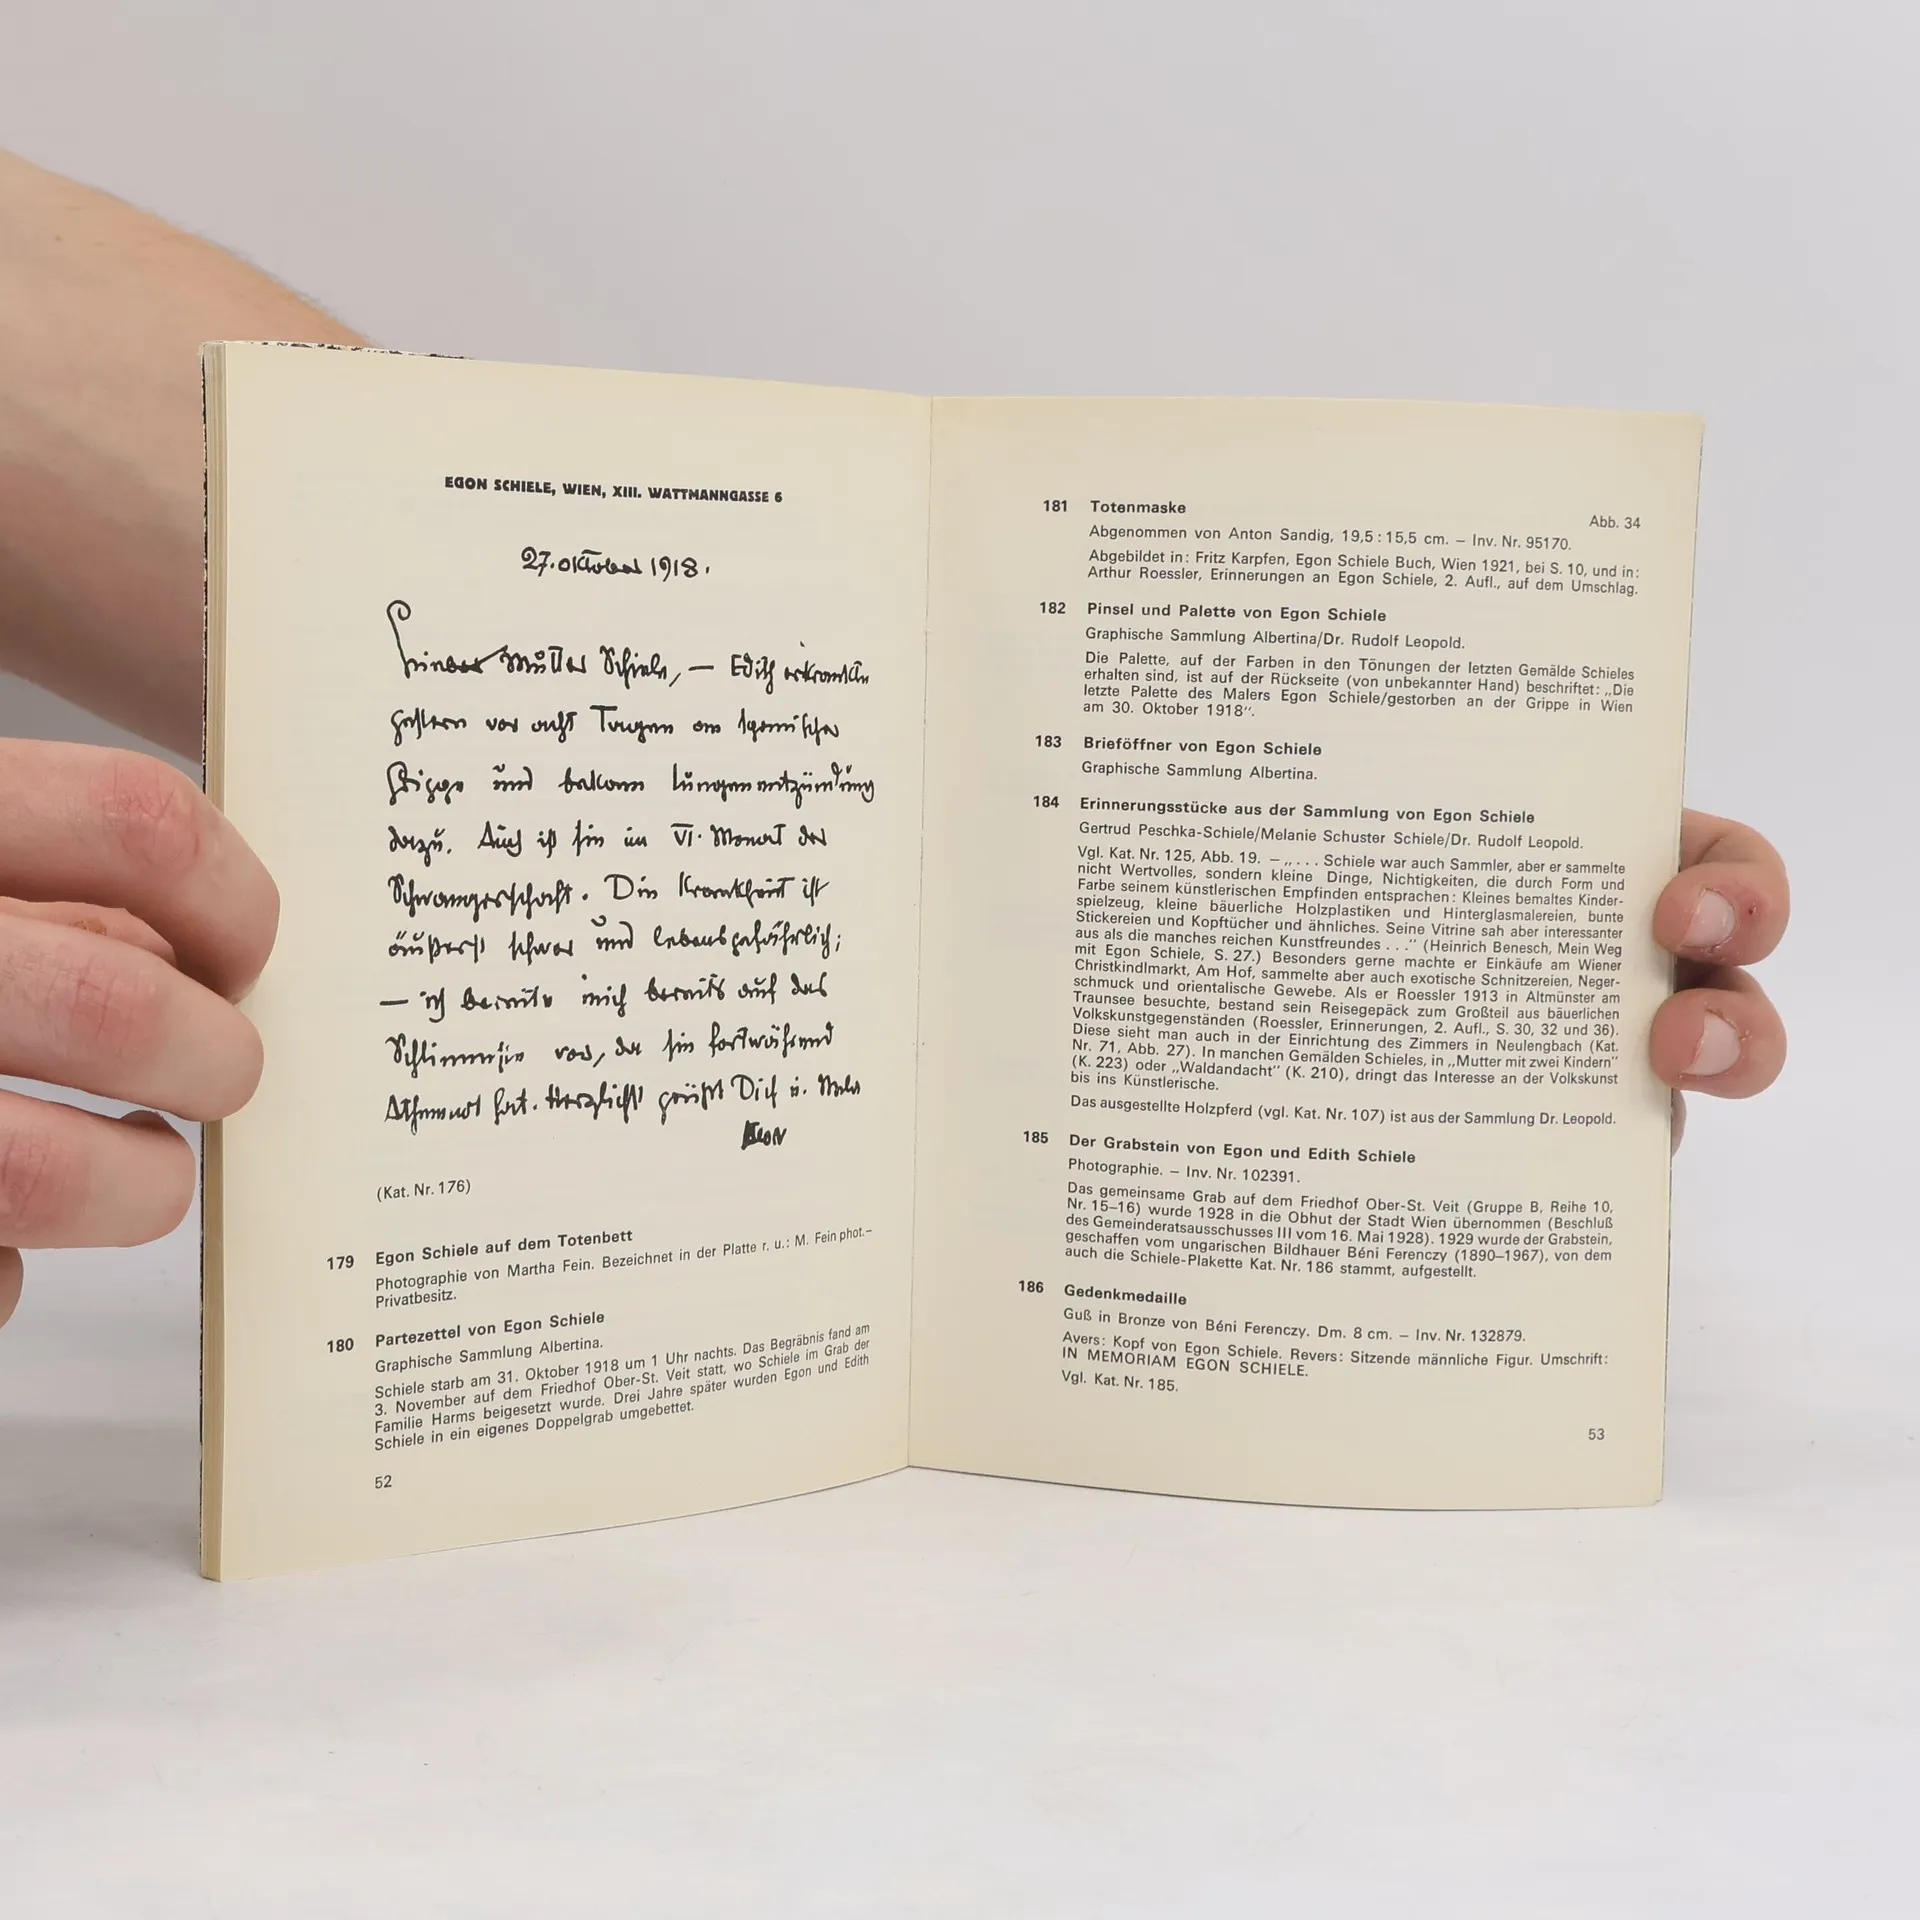 EGON SCHIELE, WIEN, XIII. WATTMANNGASSE 6
27. oktober 1918.
Mutter Schiele, — Edith erkrankte
gestern vor acht Tagen an spanischer
Grippe und bekam lungenentzündung
dazu. Auch ist sie im VI. Monat der
Schwangerschaft. Die Krankheit ist
äußerst schwer und lebensgefährlich;
— ich bereite mich bereits auf das
Schlimmste vor, da sie fortwährend
Athemnot hat. Herzlichst grüßt Dich u. Mela
EGON
(Kat. Nr. 176)
179 Egon Schiele auf dem Totenbett
Photographie von Martha Fein. Bezeichnet in der Platte r. u.: M. Fein phot.–
Privatbesitz.
180 Partezettel von Egon Schiele
Graphische Sammlung Albertina.
Schiele starb am 31. Oktober 1918 um 1 Uhr nachts. Das Begräbnis fand am
3. November auf dem Friedhof Ober-St. Veit statt, wo Schiele im Grab der
Familie Harms beigesetzt wurde. Drei Jahre später wurden Egon und Edith
Schiele in ein eigenes Doppelgrab umgebettet.
52
181 Totenmaske
Abb. 34
Abgenommen von Anton Sandig, 19,5 : 15,5 cm. – Inv. Nr. 95170.
Abgebildet in: Fritz Karpfen, Egon Schiele Buch, Wien 1921, bei S. 10, und in:
Arthur Roessler, Erinnerungen an Egon Schiele, 2. Aufl., auf dem Umschlag.
182 Pinsel und Palette von Egon Schiele
Graphische Sammlung Albertina/Dr. Rudolf Leopold.
Die Palette, auf der Farben in den Tönungen der letzten Gemälde Schieles
erhalten sind, ist auf der Rückseite (von unbekannter Hand) beschriftet: „Die
letzte Palette des Malers Egon Schiele/gestorben an der Grippe in Wien
am 30. Oktober 1918“.
183 Brieföffner von Egon Schiele
Graphische Sammlung Albertina.
184 Erinnerungsstücke aus der Sammlung von Egon Schiele
Gertrud Peschka-Schiele/Melanie Schuster Schiele/Dr. Rudolf Leopold.
Vgl. Kat. Nr. 125, Abb. 19. – „. . . Schiele war auch Sammler, aber er sammelte
nicht Wertvolles, sondern kleine Dinge, Nichtigkeiten, die durch Form und
Farbe seinem künstlerischen Empfinden entsprachen: Kleines bemaltes Kinder-
spielzeug, kleine bäuerliche Holzplastiken und Hinterglasmalereien, bunte
Stickereien und Kopftücher und ähnliches. Seine Vitrine sah aber interessanter
aus als die manches reichen Kunstfreundes . . .“ (Heinrich Benesch, Mein Weg
mit Egon Schiele, S. 27.) Besonders gerne machte er Einkäufe am Wiener
Christkindlmarkt, Am Hof, sammelte aber auch exotische Schnitzereien, Neger-
schmuck und orientalische Gewebe. Als er Roessler 1913 in Altmünster am
Traunsee besuchte, bestand sein Reisegepäck zum Großteil aus bäuerlichen
Volkskunstgegenständen (Roessler, Erinnerungen, 2. Aufl., S. 30, 32 und 36).
Diese sieht man auch in der Einrichtung des Zimmers in Neulengbach (Kat.
Nr. 71, Abb. 27). In manchen Gemälden Schieles, in „Mutter mit zwei Kindern“
(K. 223) oder „Waldandacht“ (K. 210), dringt das Interesse an der Volkskunst
bis ins Künstlerische.
Das ausgestellte Holzpferd (vgl. Kat. Nr. 107) ist aus der Sammlung Dr. Leopold.
185 Der Grabstein von Egon und Edith Schiele
Photographie. – Inv. Nr. 102391.
Das gemeinsame Grab auf dem Friedhof Ober-St. Veit (Gruppe B, Reihe 10,
Nr. 15–16) wurde 1928 in die Obhut der Stadt Wien übernommen (Beschluß
des Gemeinderatsausschusses III vom 16. Mai 1928). 1929 wurde der Grabstein,
geschaffen vom ungarischen Bildhauer Béni Ferenczy (1890–1967), von dem
auch die Schiele-Plakette Kat. Nr. 186 stammt, aufgestellt.
186 Gedenkmedaille
Guß in Bronze von Béni Ferenczy. Dm. 8 cm. – Inv. Nr. 132879.
Avers: Kopf von Egon Schiele. Revers: Sitzende männliche Figur. Umschrift:
IN MEMORIAM EGON SCHIELE.
Vgl. Kat. Nr. 185.
53